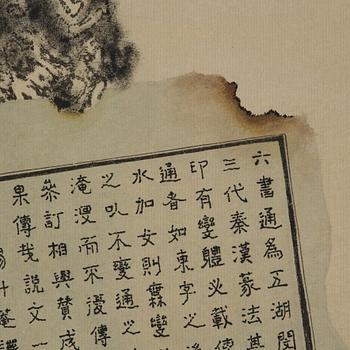 六書通為五湖閔
三代秦漢篆法其
印有變體必載使
通者如東字之
水加女則霖變
之以不變通之
淹漫而不復傳
參訂相與贊成
果傳哉說文一